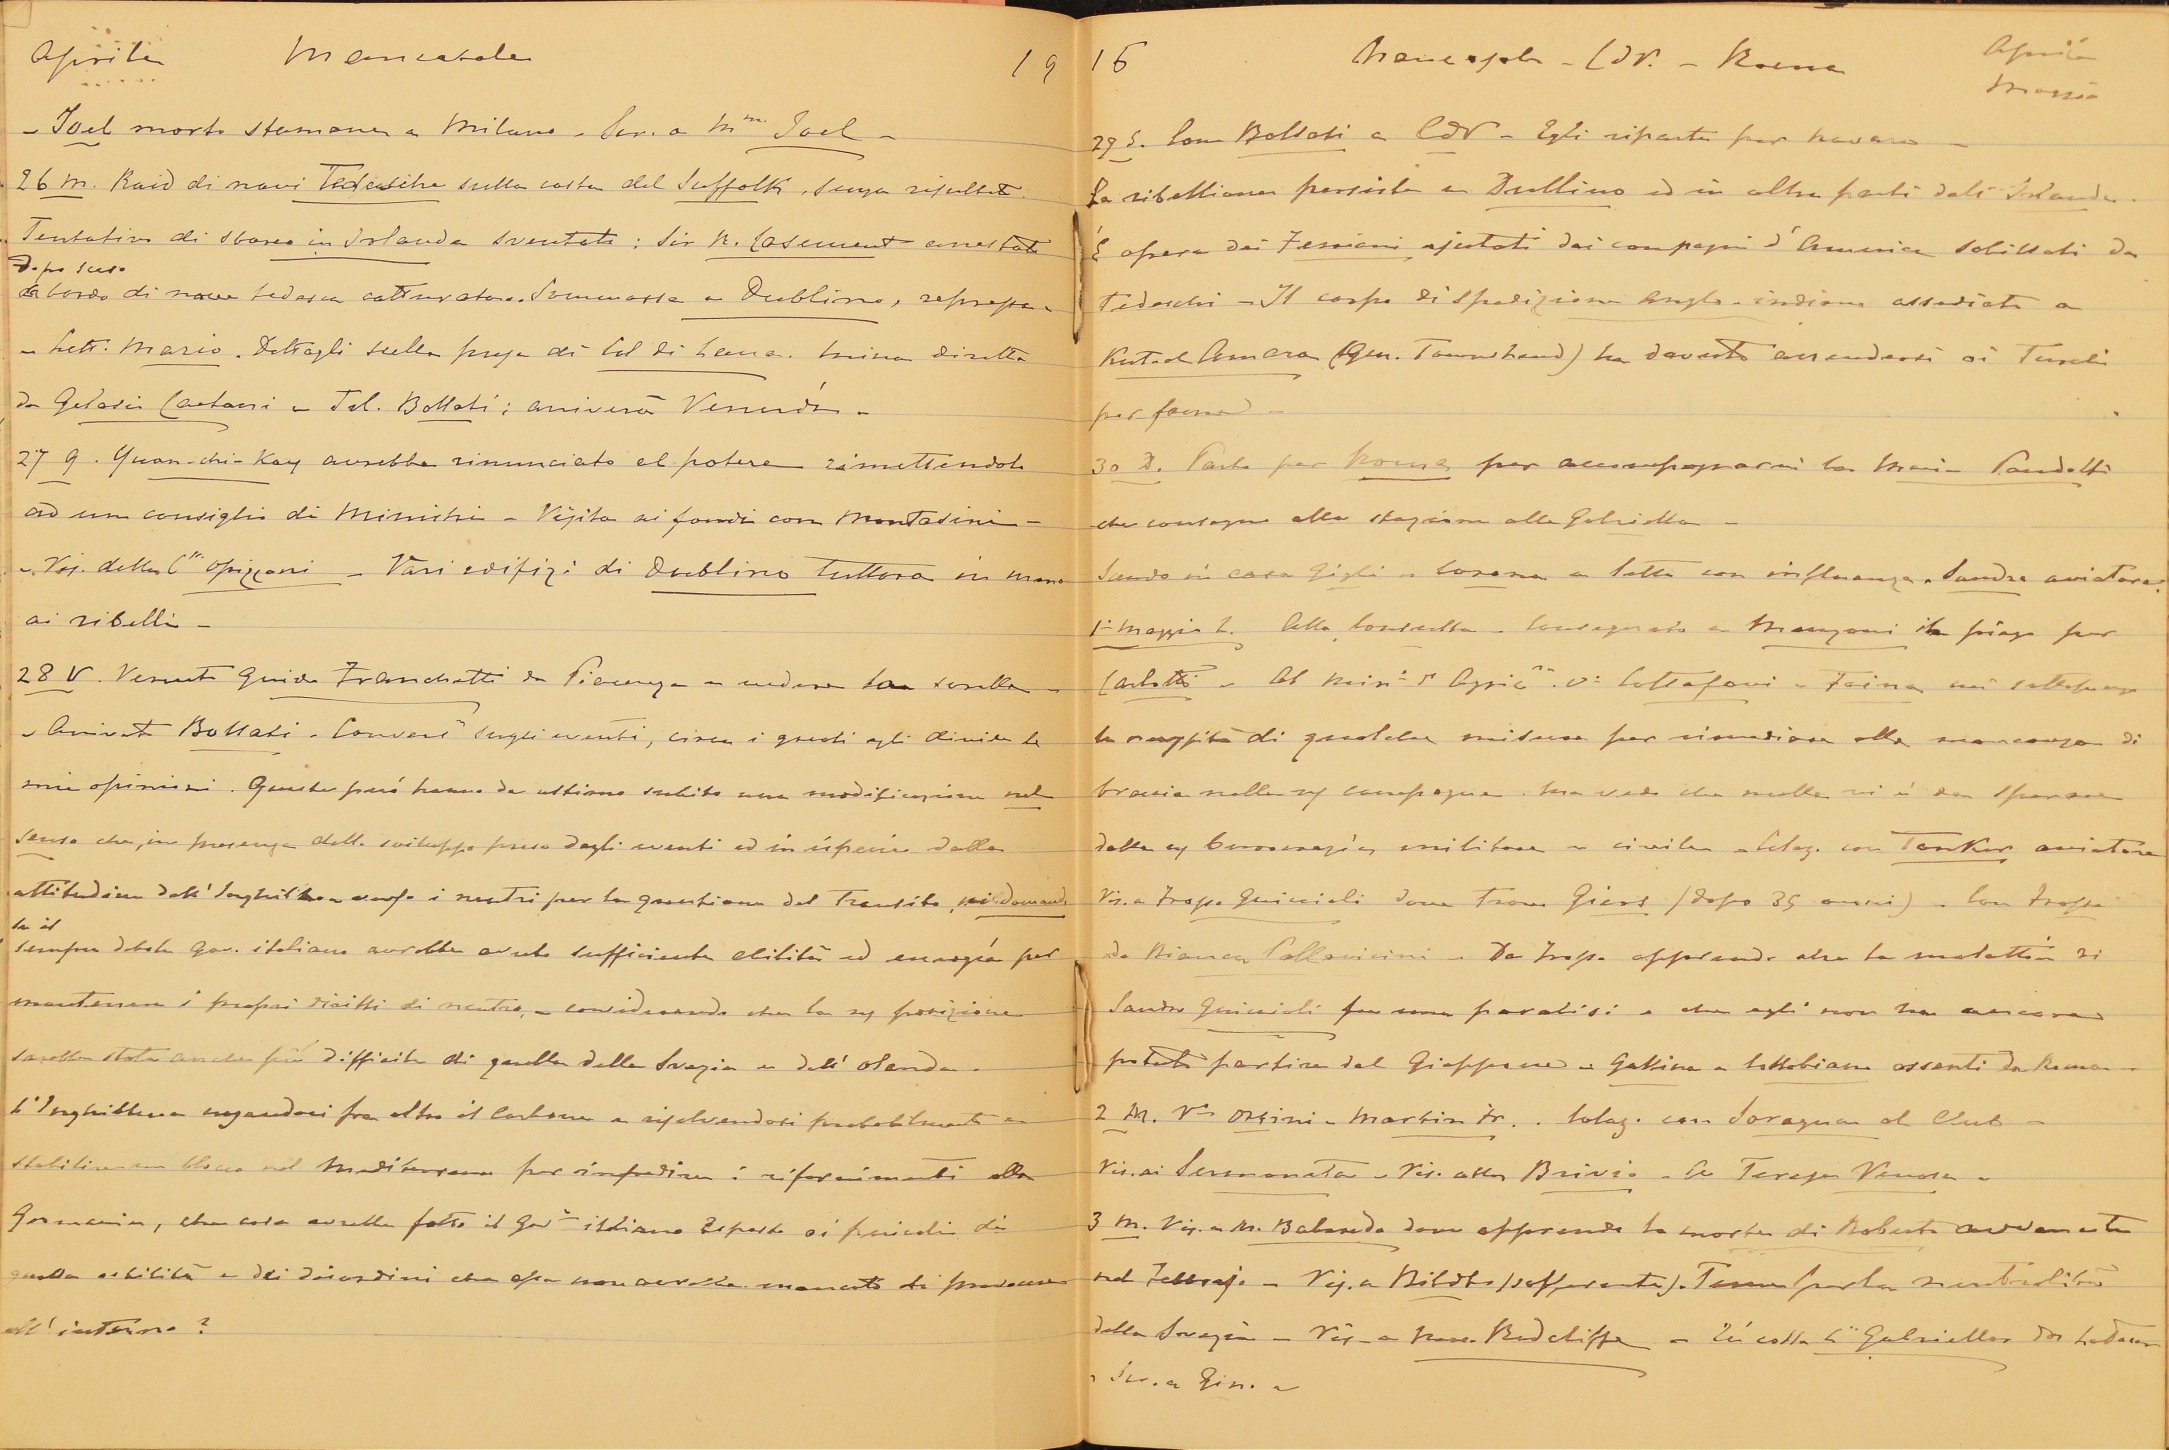 Aprile Mancasale 19
- Joel morto stamane a Milano - Scr. a Mme Joel -
26 M. Raid di navi Tedesche sulla costa del Suffolk, senza risultati.
Tentativo di sbarco in Irlanda sventato: Sir R. Casement arrestato
dopo sceso
da bordo di nave tedesca catturata. Sommossa a Dublino, repressa -
- Lett. Mario. Dettagli sulla presa di Col di Lana. mina diretta
da Gelasio Caetani - Tel. Bollati: arriverà Venerdì -
27 G. Yuan-chi-Kay avrebbe rinunciato al potere rimettendolo
ad un consiglio di Ministri - Visita ai fondi con Montasini -
- Vis. della Css. Opizzoni - Vari edifizi di Dublino tuttora in mano
ai ribelli -
28 V. Venuto Guido Franchetti da Piacenza a vedere la sorella -
- Arrivato Bollati. Convers. sugli eventi, circa i quali egli divide le
mie opinioni. Queste però hanno da ultimo subito una modificazione nel
senso che, in presenza dello sviluppo preso dagli eventi ed in ispecie dalla
attitudine dell'Inghilterra verso i neutri per la questione del transito, mi domando
se il
sempre debole gov. italiano avrebbe avuto sufficiente abilità ed energia per
mantenere i propri diritti di neutro, - considerando che la ns posizione
sarebbe stata anche più difficile di quella della Svezia e dell'Olanda.
L'Inghilterra negandoci fra altro il carbone e risolvendosi probabilmente a
stabilire un blocco nel Mediterraneo per impedire i rifornimenti alla
Germania, che cosa avrebbe fatto il Gov. italiano esposto ai pericoli di
quella ostilità e dei disordini che essa non avrebbe mancato di provocare
all'interno?
16 Mancasale - CdV. - Roma Aprile
Maggio
29 S. Con Bollati a CdV - Egli riparte per Novara -
La ribellione persiste a Dublino ed in altre parti dell'Irlanda.
È opera dei Feniani, ajutati dai compagni d'America sobillati da
Tedeschi - Il corpo di spedizione Anglo-indiano assediato a
Kut-el Amara (Gen. Townshend) ha dovuto arrendersi ai Turchi
per fame -
30 D. Parto per Roma per accompagnarvi la Maria Pandolfi
che consegno alla stazione alla Gabriella -
Scendo in casa Gigli - a letto con influenza. Sandro aviatore.
1° Maggio L. Alla Consulta - Consegnato a Manzoni il piego per
Carlotti - Al Min° d'Agric. v. Cottafavi - Faina
la necessità di qualche misura per rimediare alla mancanza di
braccia nelle ns campagne. Ma vedo che nulla vi è da sperare
dalla ns burocrazia militare e civile - Colaz. con Tenker aviatore
Vis. a Frosso Guiccioli dove trovo Giers (dopo 35 anni) - Con Frosso
da Bianca Pallavicini - Da Frosso apprendo che la malattia di
Sandro Guiccioli fu una paralisi e che egli non ha ancora
potuto partire dal Giappone - Gallina e assenti da Roma -
2 M. Vis Orsini - Martin Fr. - Colaz. con Soragna al Club -
Vis. ai Sermoneta - Vis. alla Brivio - A Teresa Venosa -
3 M. Vis. a M. Balaseda dove apprendo la morte di Roberto avvenuta
nel Febbrajo - Vis. a Bildt (sofferente). Teme per la neutralità
della Svezia - Vis. a Redcliffe - colla Css Gabriella
- Scr. a Gin. -